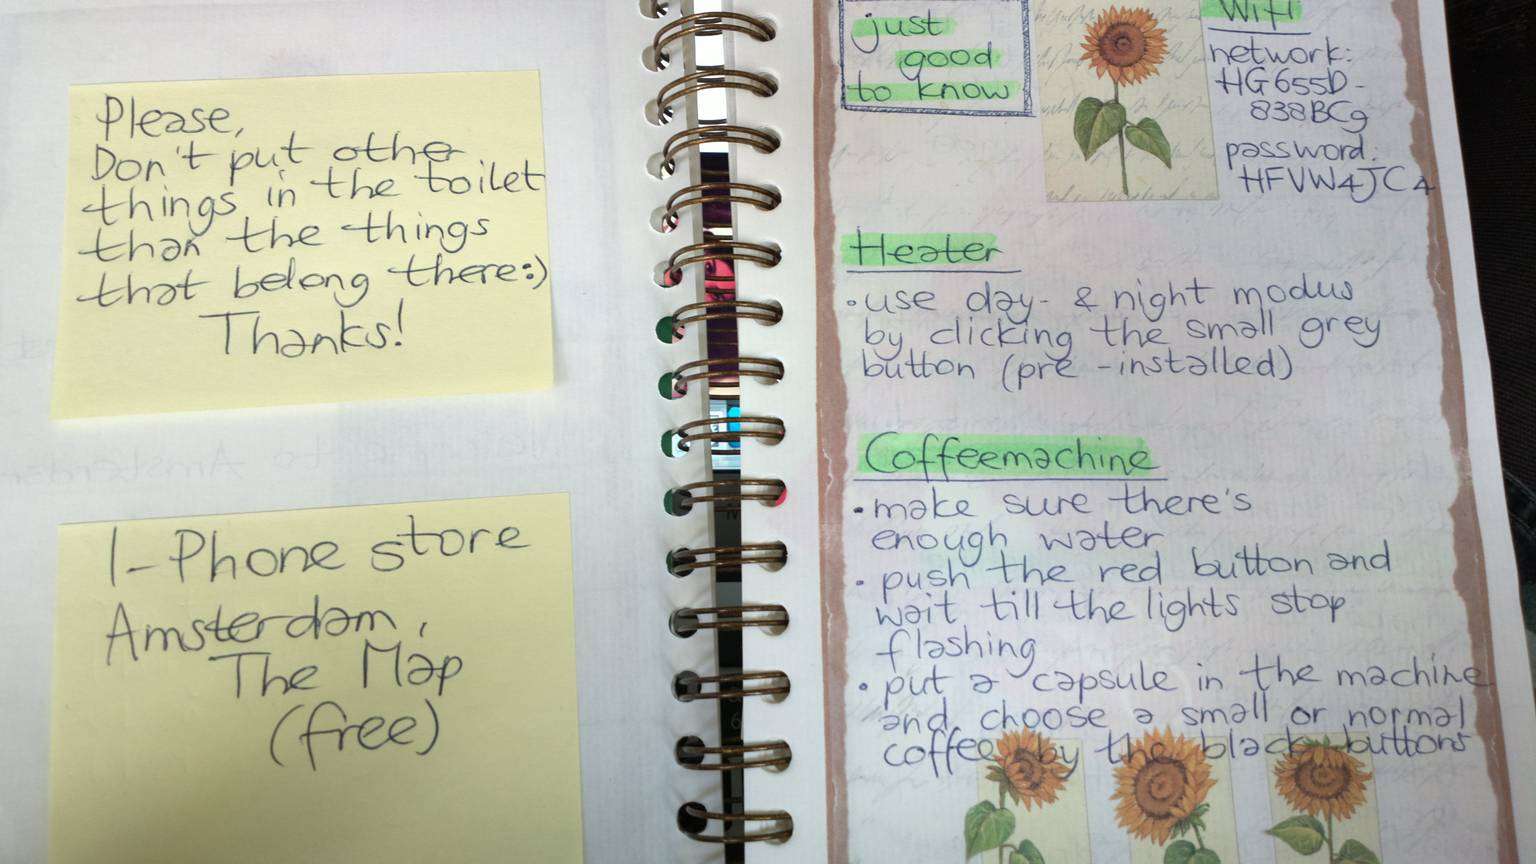 Please,
Don't put othe
things in the toilet
than the things
that belong there:)
Thanks!
I-Phone store
Amsterdam,
The Map
(free)
just
good
to know
Wifi
network:
HG655D-
838BC9
password:
HFVW4JC4
Heater
•use day- & night modus
by clicking the small grey
button (pre-installed)
Coffeemachine
•make sure there's
enough water
•push the red button and
wait till the lights stop
flashing
•put a capsule in the machine
and choose a small or normal
coffee by the black buttons